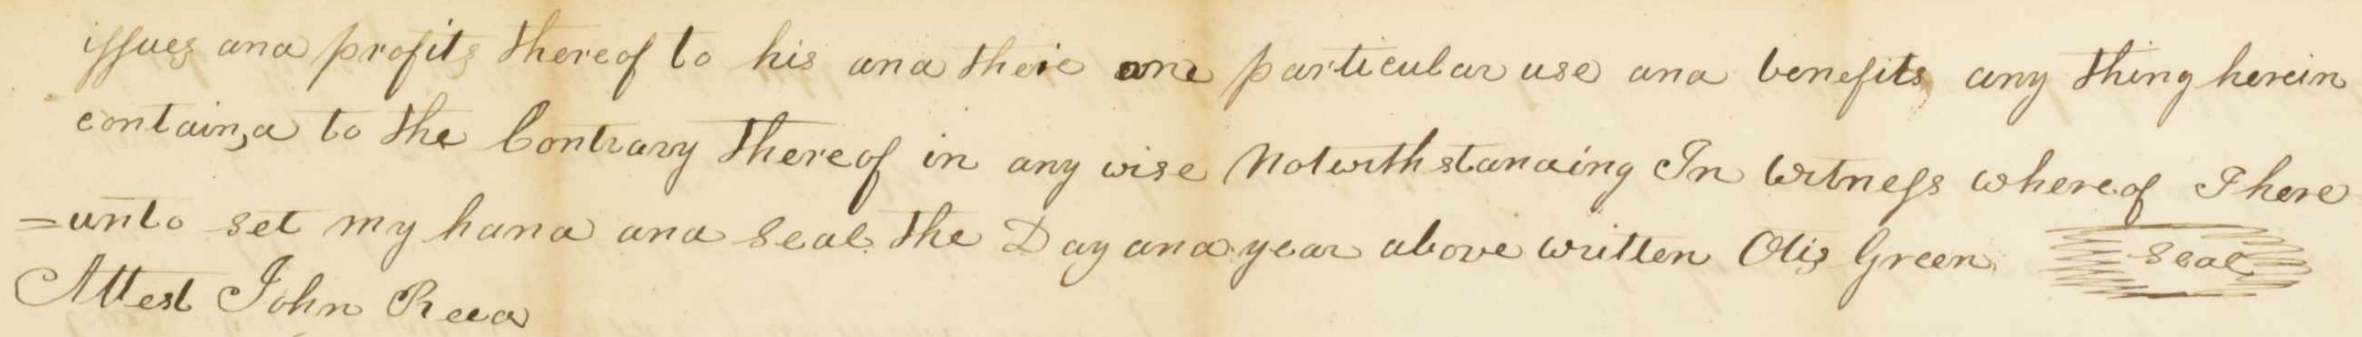 issues and profits thereof to his and their one particular use and benefits any thing herein
contain,d to the Contrary thereof in any wise Notwithstanding In Witness whereof I here
=unto set my hand and Seal the Day and year above written Otis Green Seal
Attest John Reed